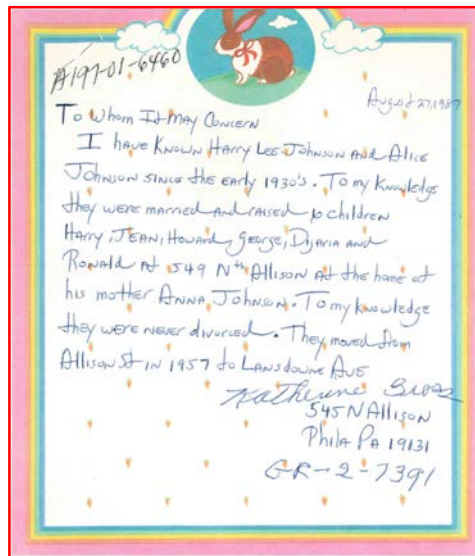 A197-01-6460
August 27, 1987
To Whom It May Concern
I have Known Harry Lee Johnson and Alice
Johnson since the early 1930's. To my Knowledge
they were married and raised 6 children
Harry, Jean, Howard, George, and
Ronald At 549 Nth Allison At the home of
his mother Anna Johnson. To my knowledge
they were never divorced. They moved from
Allison St in 1957 to Lansdowne Ave
Katherine
545 N Allison
Phila Pa 19131
GR-2-7391